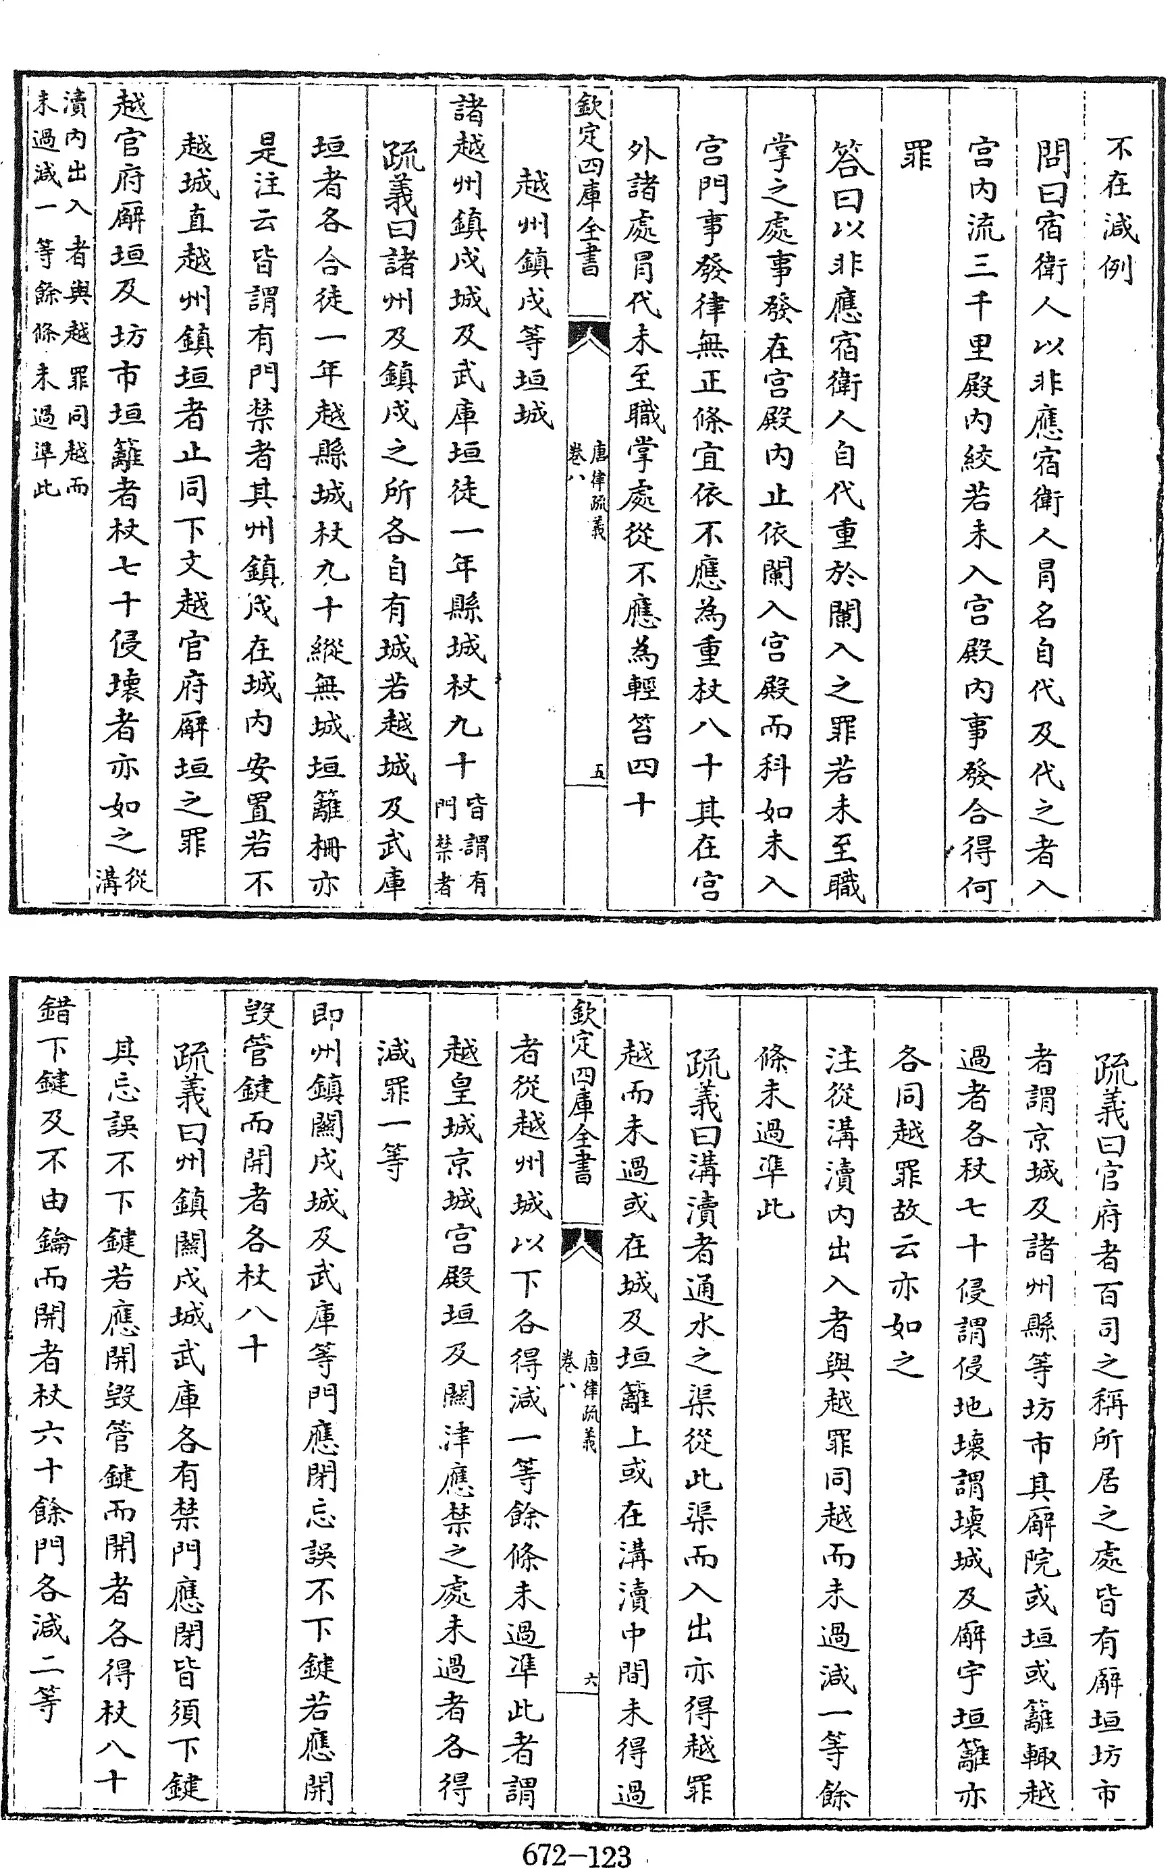 不在減例
問曰宿衛人以非應宿衛人冒名自代及代之者入
宮内流三千里殿内絞若未入宮殿内事發合得何
罪
答曰以非應宿衛人自代重於闌入之罪若未至職
掌之處事發在宮殿内止依闌入宮殿而科如未入
宮門事發律無正條宜依不應為重杖八十其在宮
外諸處冒代未至職掌處從不應為輕笞四十
欽定四庫全書
唐律疏義
卷八
五
越州鎮戍等垣城
諸越州鎮戍城及武庫垣徒一年縣城杖九十皆謂有
門禁者
疏義曰諸州及鎮戍之所各自有城若越城及武庫
垣者各合徒一年越縣城杖九十縱無城垣籬柵亦
是注云皆謂有門禁者其州鎮戍在城内安置若不
越城直越州鎮垣者止同下文越官府廨垣之罪
越官府廨垣及坊市垣籬者杖七十侵壞者亦如之從
溝
瀆内出入者與越罪同越而
未過減一等餘條未過準此
疏義曰官府者百司之稱所居之處皆有廨垣坊市
者謂京城及諸州縣等坊市其廨院或垣或籬輙越
過者各杖七十侵謂侵地壞謂壞城及廨宇垣籬亦
各同越罪故云亦如之
注從溝瀆内出入者與越罪同越而未過減一等餘
條未過準此
疏義曰溝瀆者通水之渠從此渠而入出亦得越罪
越而未過或在城及垣籬上或在溝瀆中間未得過
欽定四庫全書
唐律疏義
卷八
六
者從越州城以下各得減一等餘條未過準此者謂
越皇城京城宮殿垣及關津應禁之處未過者各得
減罪一等
即州鎮關戍城及武庫等門應閉忘誤不下鍵若應開
毁管鍵而開者各杖八十
疏義曰州鎮關戍城武庫各有禁門應閉皆須下鍵
其忘誤不下鍵若應開毁管鍵而開者各得杖八十
錯下鍵及不由鑰而開者杖六十餘門各減二等
672-123